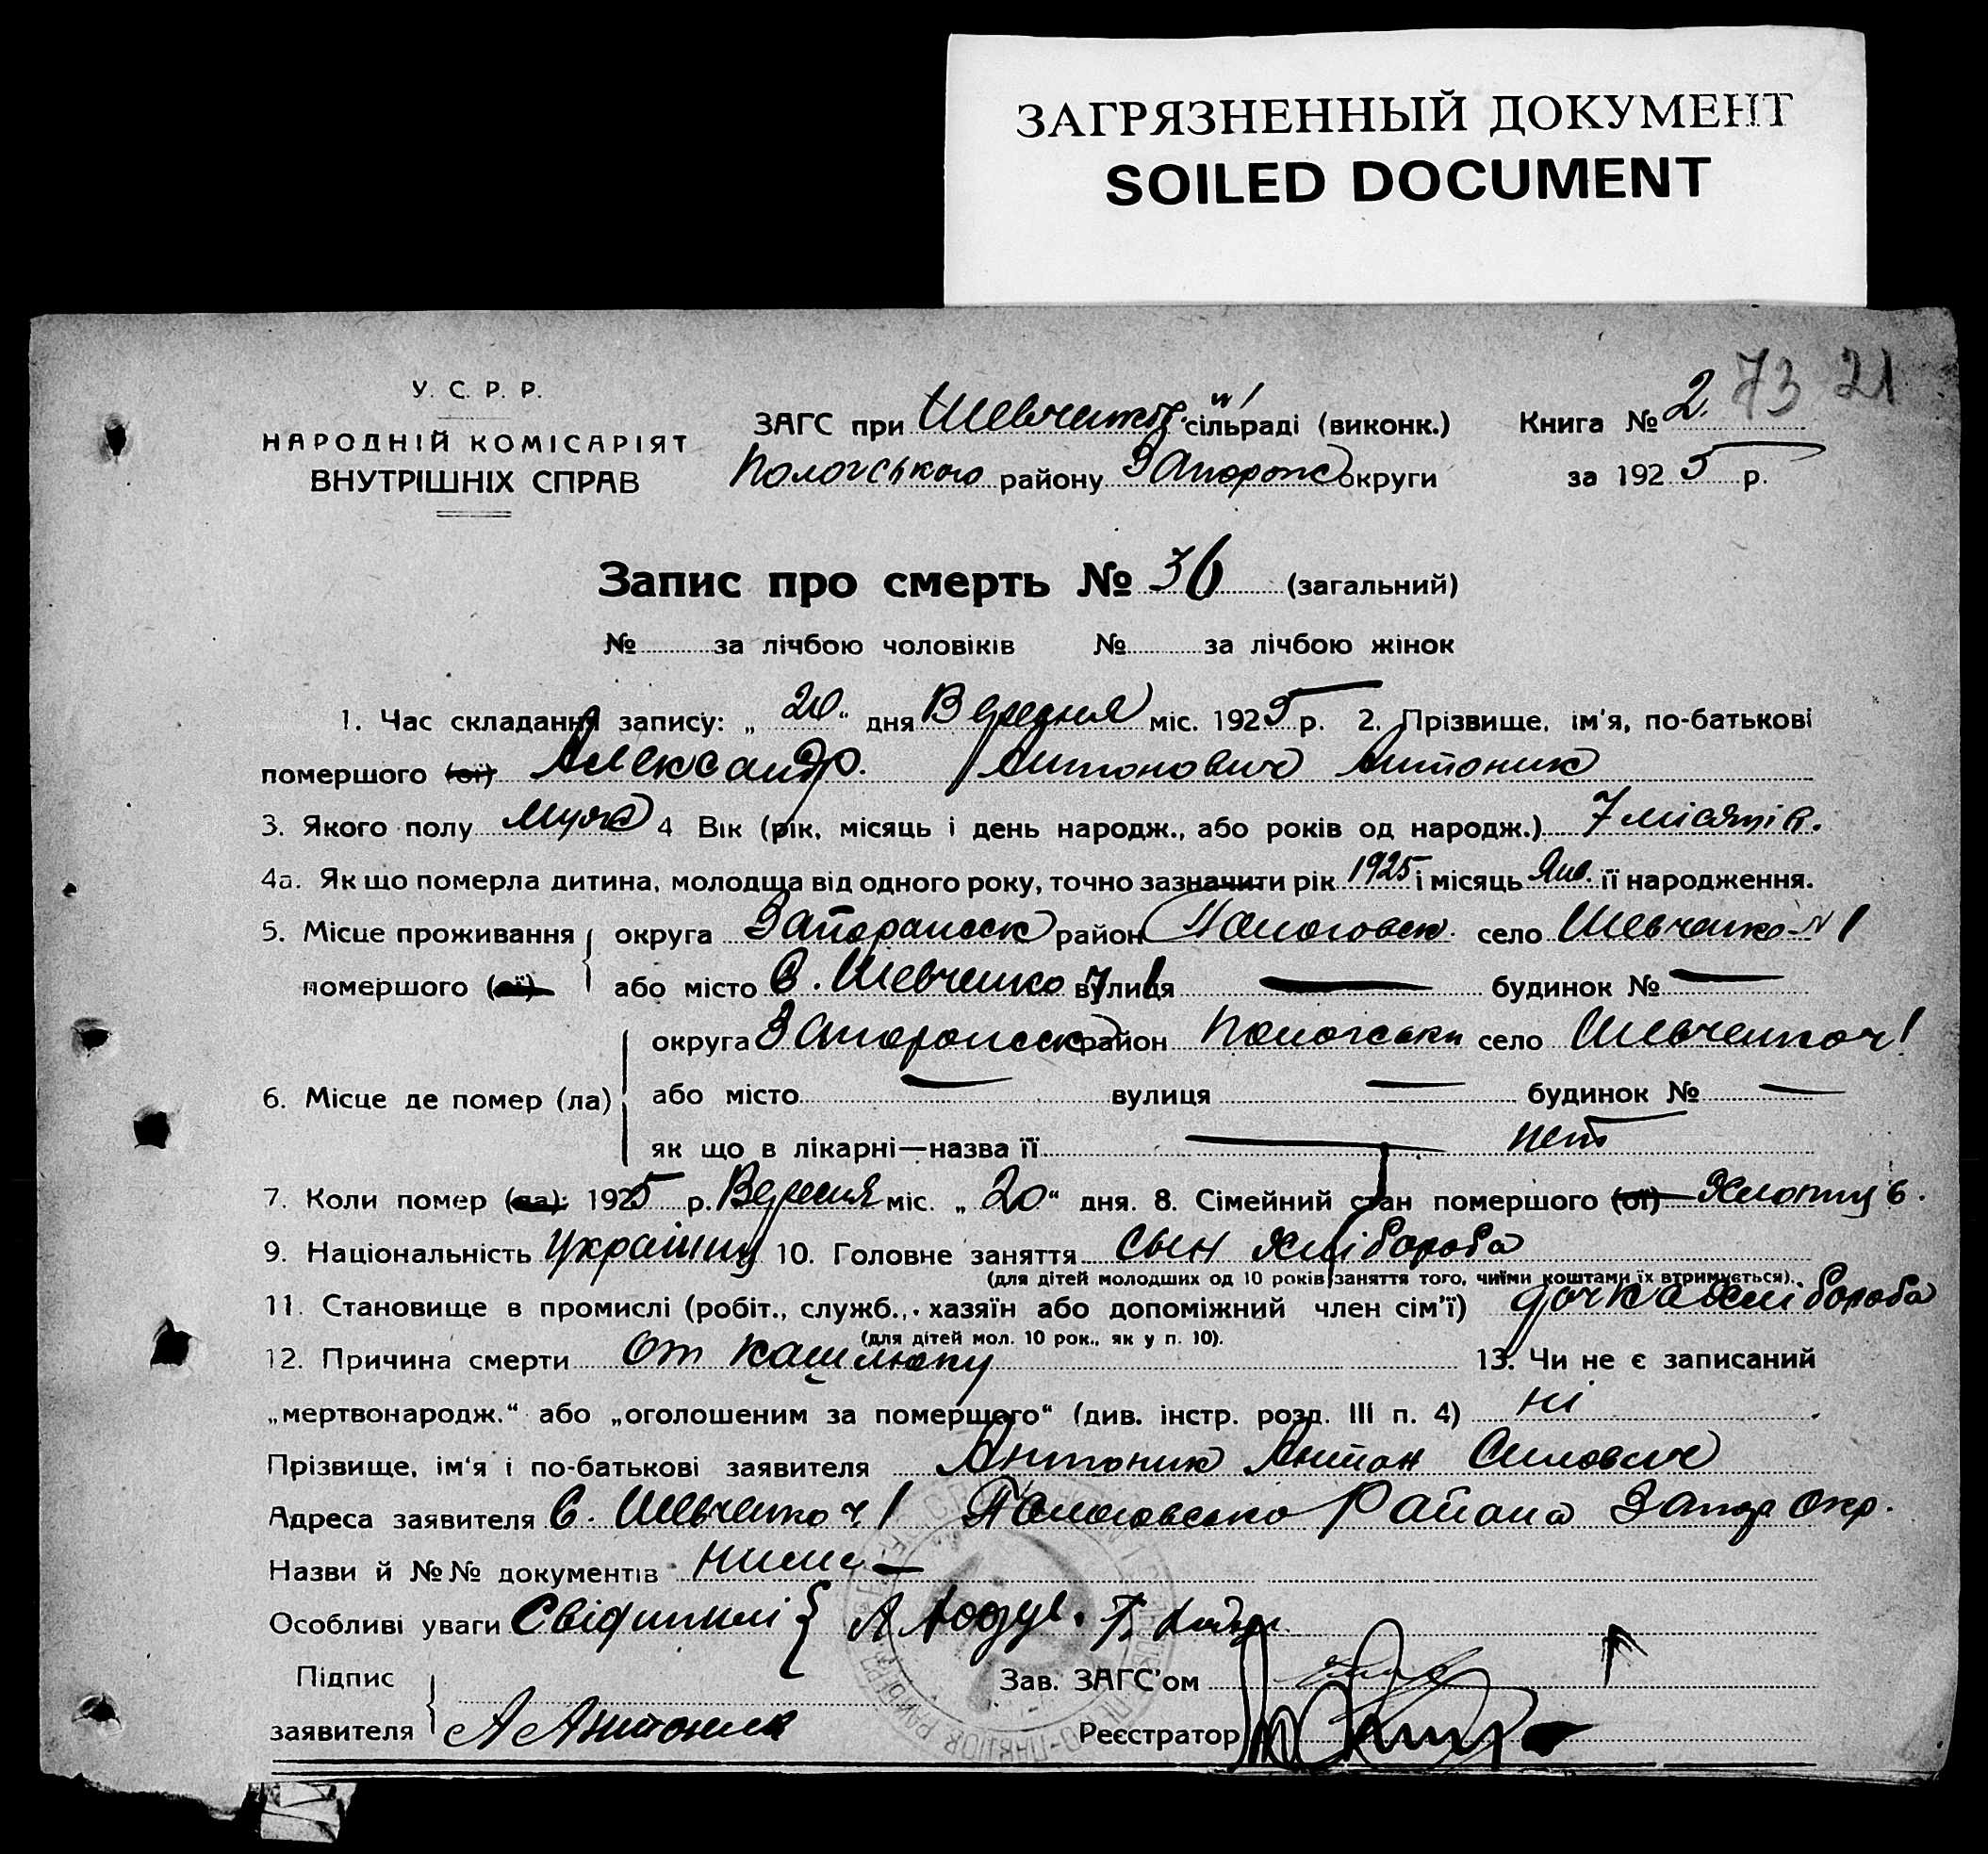 ЗАГРЯЗНЕННЫЙ ДОКУМЕНТ
SOILED DOCUMENT
73 21
У. С. Р. Р.
НАРОДНІЙ КОМІСАРІЯТ
ВНУТРІШНІХ СПРАВ
ЗАГС при Шевченк. №1 сільраді (виконк.) Книга № 2.
Пологського району Запорож округи за 1925 р.
Запис про смерть № 36 (загальний)
№ за лічбою чоловіків № за лічбою жінок
1. Час складання запису: „20“ дня Вересня міс. 1925 р. 2. Прізвище, ім'я, по-батькові
помершого (ої) Александр. Антонович Антоник
3. Якого полу Муж 4 Вік (рік, місяць і день народж., або років од народж.) 7 місяців.
4а. Як що померла дитина, молодща від одного року, точно зазначити рік 1925 і місяць Янв. її народження.
5. Місце проживання округа район село Шевченко №1
помершого (ої) або місто С. Шевченко ч 1 вулиця — будинок № —
6. Місце де помер (ла) округа район село Шевченко ч 1
або місто — вулиця — будинок № —
як що в лікарні—назва її — нет
7. Коли помер (ла): 1925 р. Вересня міс. „20“ дня. 8. Сімейний стан помершого (ої)
9. Національність українц 10. Головне заняття сын хлібороба
(для дітей молодших од 10 років заняття того, чиїми коштами їх втримується).
11. Становище в промислі (робіт., служб., хазяїн або допоміжний член сім'ї) дочка хлібороба
(для дітей мол. 10 рок., як у п. 10).
12. Причина смерти от кашлюку 13. Чи не є записаний
„мертвонародж.“ або „оголошеним за помершого“ (див. інстр. розд. III п. 4) ні
Прізвище, ім'я і по-батькові заявителя Антоник Антон
Адреса заявителя С. Шевченко ч. 1 Пологовско Района Запор Окр.
Назви й №№ документів —
Особливі уваги Свідиткі { А
Підпис
заявителя А Антоник
Зав. ЗАГС'ом
Реєстратор